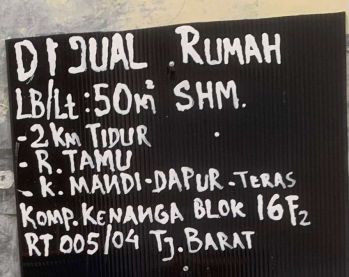 DIJUAL .RUMAH
LB/Lt:50m² SHM.
-2 Km TIDUR
- R. TAMU
- K. MANDI-DAPUR-TERAS
KOMP. KENANGA BLOK 16F2
RT 005/04 Tj. BARAT